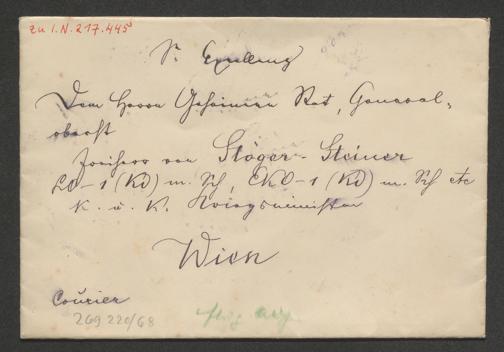 zu I.N. 217.445
Sr Exzellenz
Dem Herrn Geheimen Rat, General-
oberst
Freiherr von Stöger-Steiner
LO-1 (KD) m. Sch, EKO-1 (KD) m. Sch etc
K. u. K. Kriegsminister
Wien
Courier
269 220/68